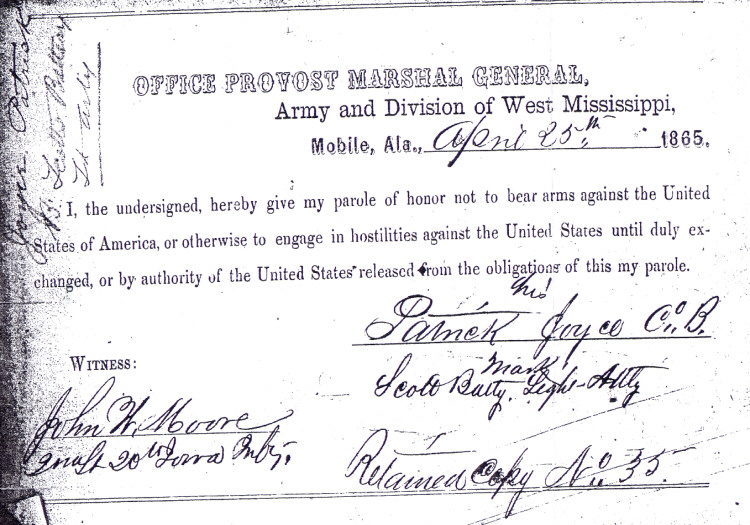 Joyce Patrick
Scotts Battery
Lt Arty
OFFICE PROVOST MARSHAL GENERAL,
Army and Division of West Mississippi,
Mobile, Ala., April 25th 1865.
I, the undersigned, hereby give my parole of honor not to bear arms against the United
States of America, or otherwise to engage in hostilities against the United States until duly ex-
changed, or by authority of the United States released from the obligations of this my parole.
his
Patrick Joyce Co. B.
mark
Scott Batty. Light Atty
WITNESS:
John W. Moore
20th Iowa Infty.
Retained Copy No. 35.